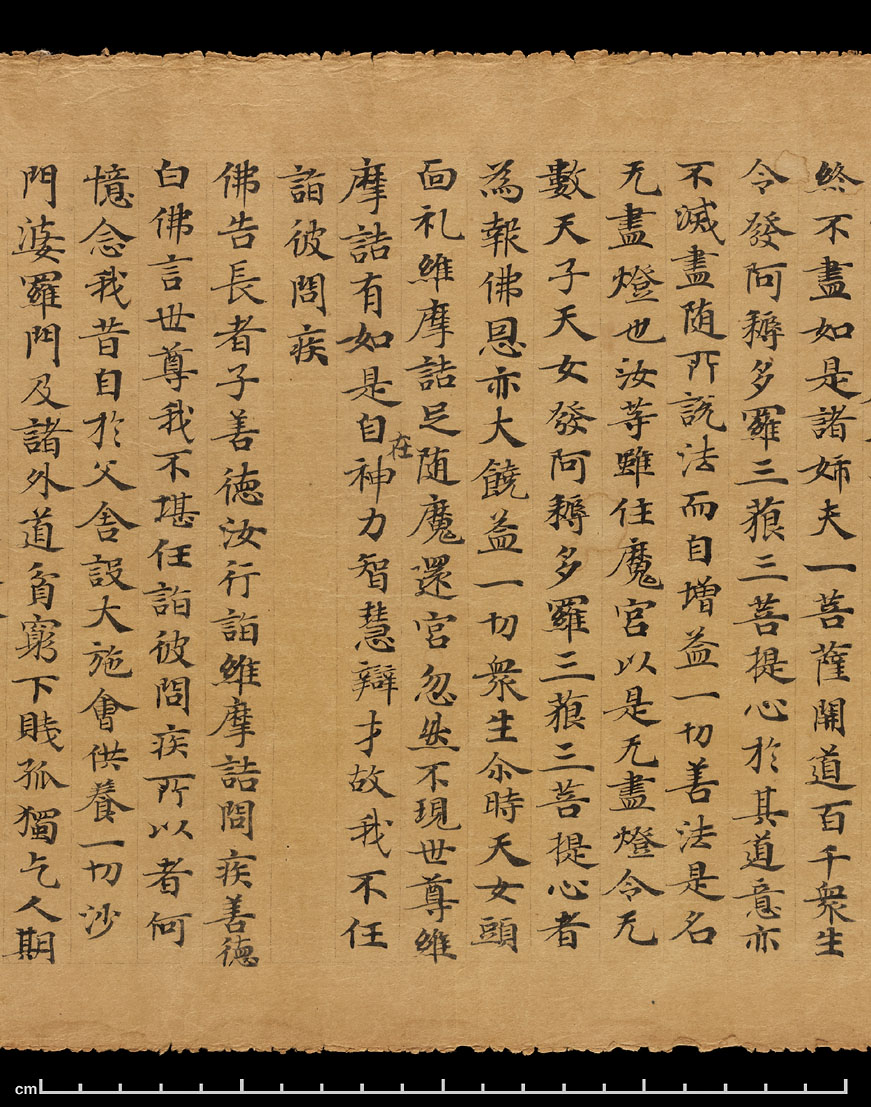 終不盡如是諸姉夫一菩薩開道百千衆生
令發阿耨多羅三藐三菩提心於其道意亦
不滅盡随所說法而自増益一切善法是名
无盡燈也汝等雖住魔宮以是无盡燈令无
數天子天女發阿耨多羅三藐三菩提心者
為報佛恩亦大饒益一切衆生尒時天女頭
面礼維摩詰足随魔還宮忽然不現世尊維
摩詰有如是自在神力智慧辯才故我不任
詣彼問疾
佛告長者子善德汝行詣維摩詰問疾善德
白佛言世尊我不堪任詣彼問疾所以者何
憶念我昔自於父舍設大施會供養一切沙
門婆羅門及諸外道貧窮下賎孤獨乞人期
cm